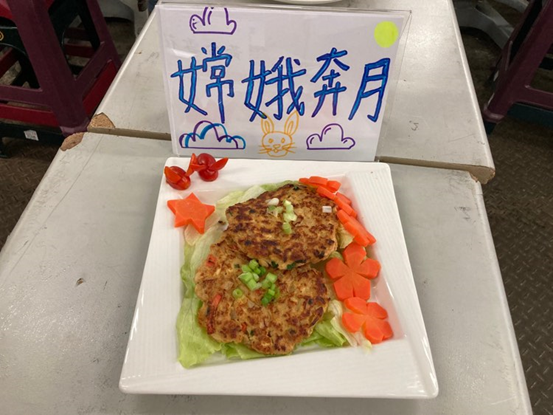 嫦娥奔月